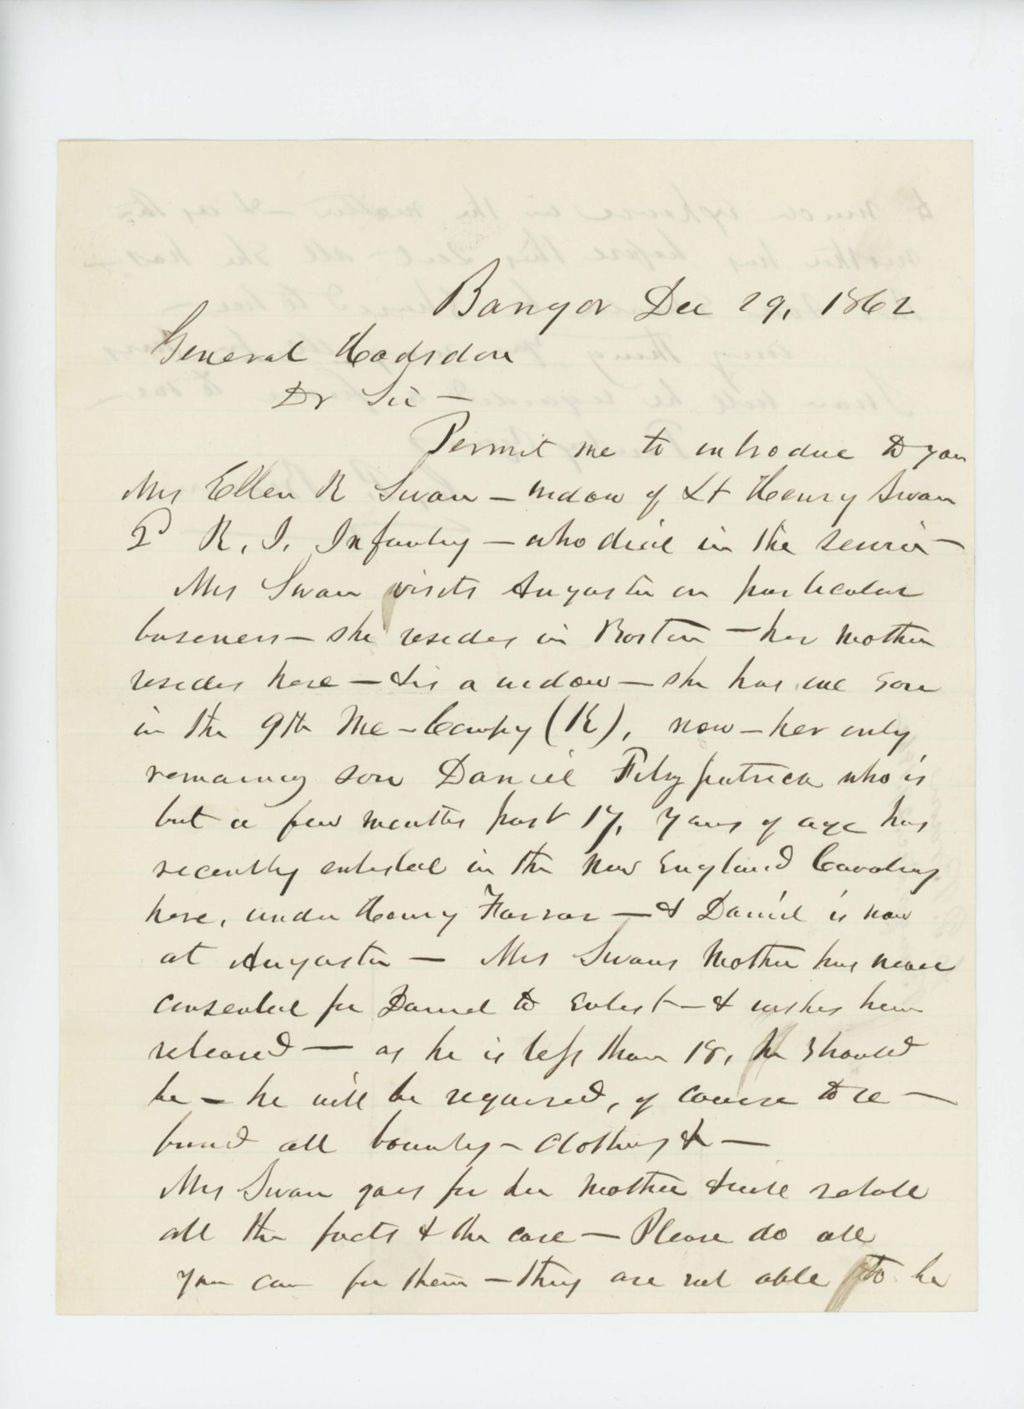 Bangor Dec 29, 1862
General Hodsdon
Dr Sir —
Permit me to introduce to you
Mrs Ellen R Swan — widow of Lt Henry Swan
2d R. I. Infantry — who died in the service —
Mrs Swan visits Augusta on particular
business — she resides in Boston — her mother
resides here — & is a widow — she has one son
in the 9th Me – Compy (K), now — her only
remaining son Daniel Fitzpatrick who is
but a few months past 17, years of age has
recently enlisted in the New England Cavalry
here, under Henry Farrar — & Daniel is now
at Augusta — Mrs Swans Mother has never
consented for Daniel to Enlist — & wishes him
released — as he is less than 18, he should
be — he will be required, of course to re —
fund all bounty – Clothing & —
Mrs Swan goes for her mother & will relate
all the facts & the case — Please do all
you can for them — they are not able to be